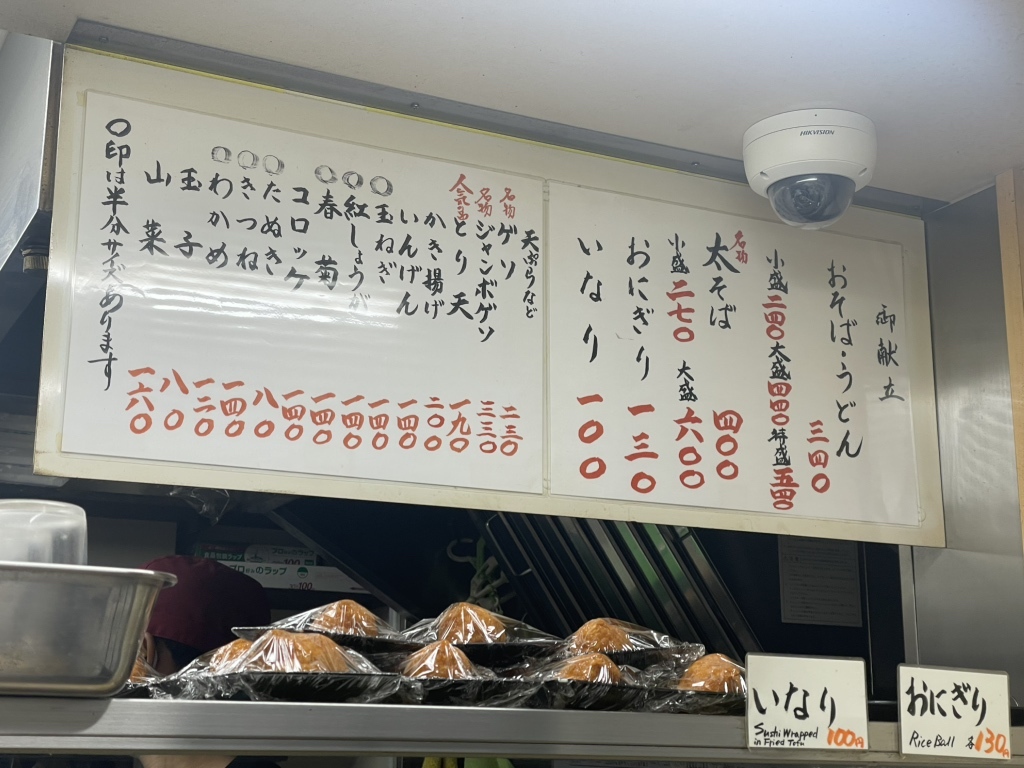 御献立
おそば・うどん 三四〇
小盛二四〇大盛四四〇特盛五四〇
名物 太そば 四〇〇
小盛二七〇 大盛六〇〇
おにぎり 一三〇
いなり 一〇〇
天ぷらなど
名物 ゲソ 二三〇
名物 ジャンボゲソ 三三〇
とり天 一九〇
かき揚げ 二〇〇
いんげん 一四〇
〇玉ねぎ 一四〇
〇紅しょうが 一四〇
〇春菊 一四〇
コロッケ 一四〇
〇たぬき 八〇
〇きつね 一四〇
〇わかめ 一二〇
玉子 八〇
山菜 一六〇
〇印は半分サイズあります
HIKVISION
のラップ
100
いなり
Sushi Wrapped
in Fried Tofu
100円
おにぎり
Rice Ball 各130円